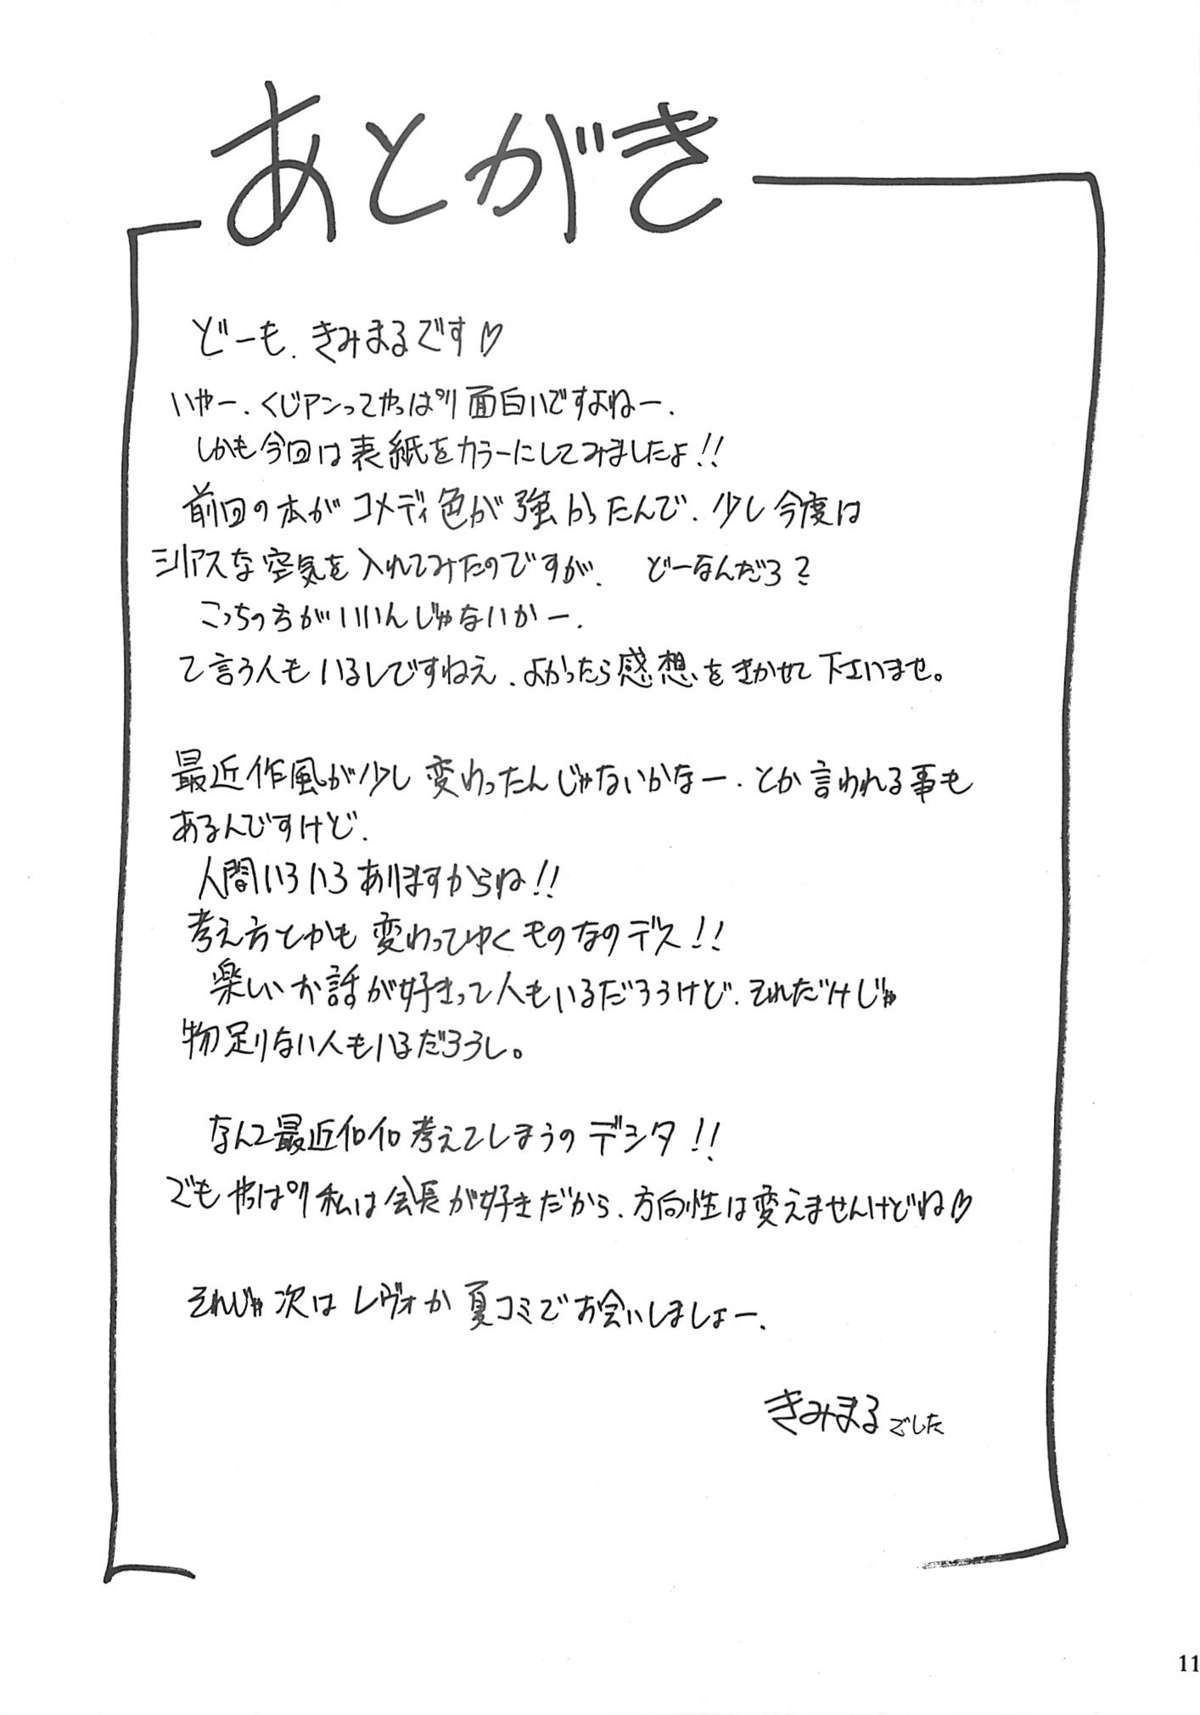 あとがき
どーも、きみまるです♡
いやー、くじアンってやっぱり面白いですよねー、
しかも今回は表紙をカラーにしてみましたよ!!
前回の本がコメディ色が強かったんで、少し今度は
シリアスな空気を入れてみたのですが、どーなんだろ?
こっちの方がいいんじゃないかー、
て言う人もいるしですねえ、よかったら感想をきかせて下さいませ。
最近作風が少し変わったんじゃないかなー、とか言われる事も
あるんですけど、
人間いろいろありますからね!!
考え方とかも変わってゆくものなのデス!!
楽しいお話が好きって人もいるだろうけど、それだけじゃ
物足りない人もいるだろうし。
なんて最近イロイロ考えてしまうのデシタ!!
でもやっぱり私は会長が好きだから、方向性は変えませんけどね♡
それじゃ次はレヴォか夏コミでお会いしましょー、
きみまるでした
11